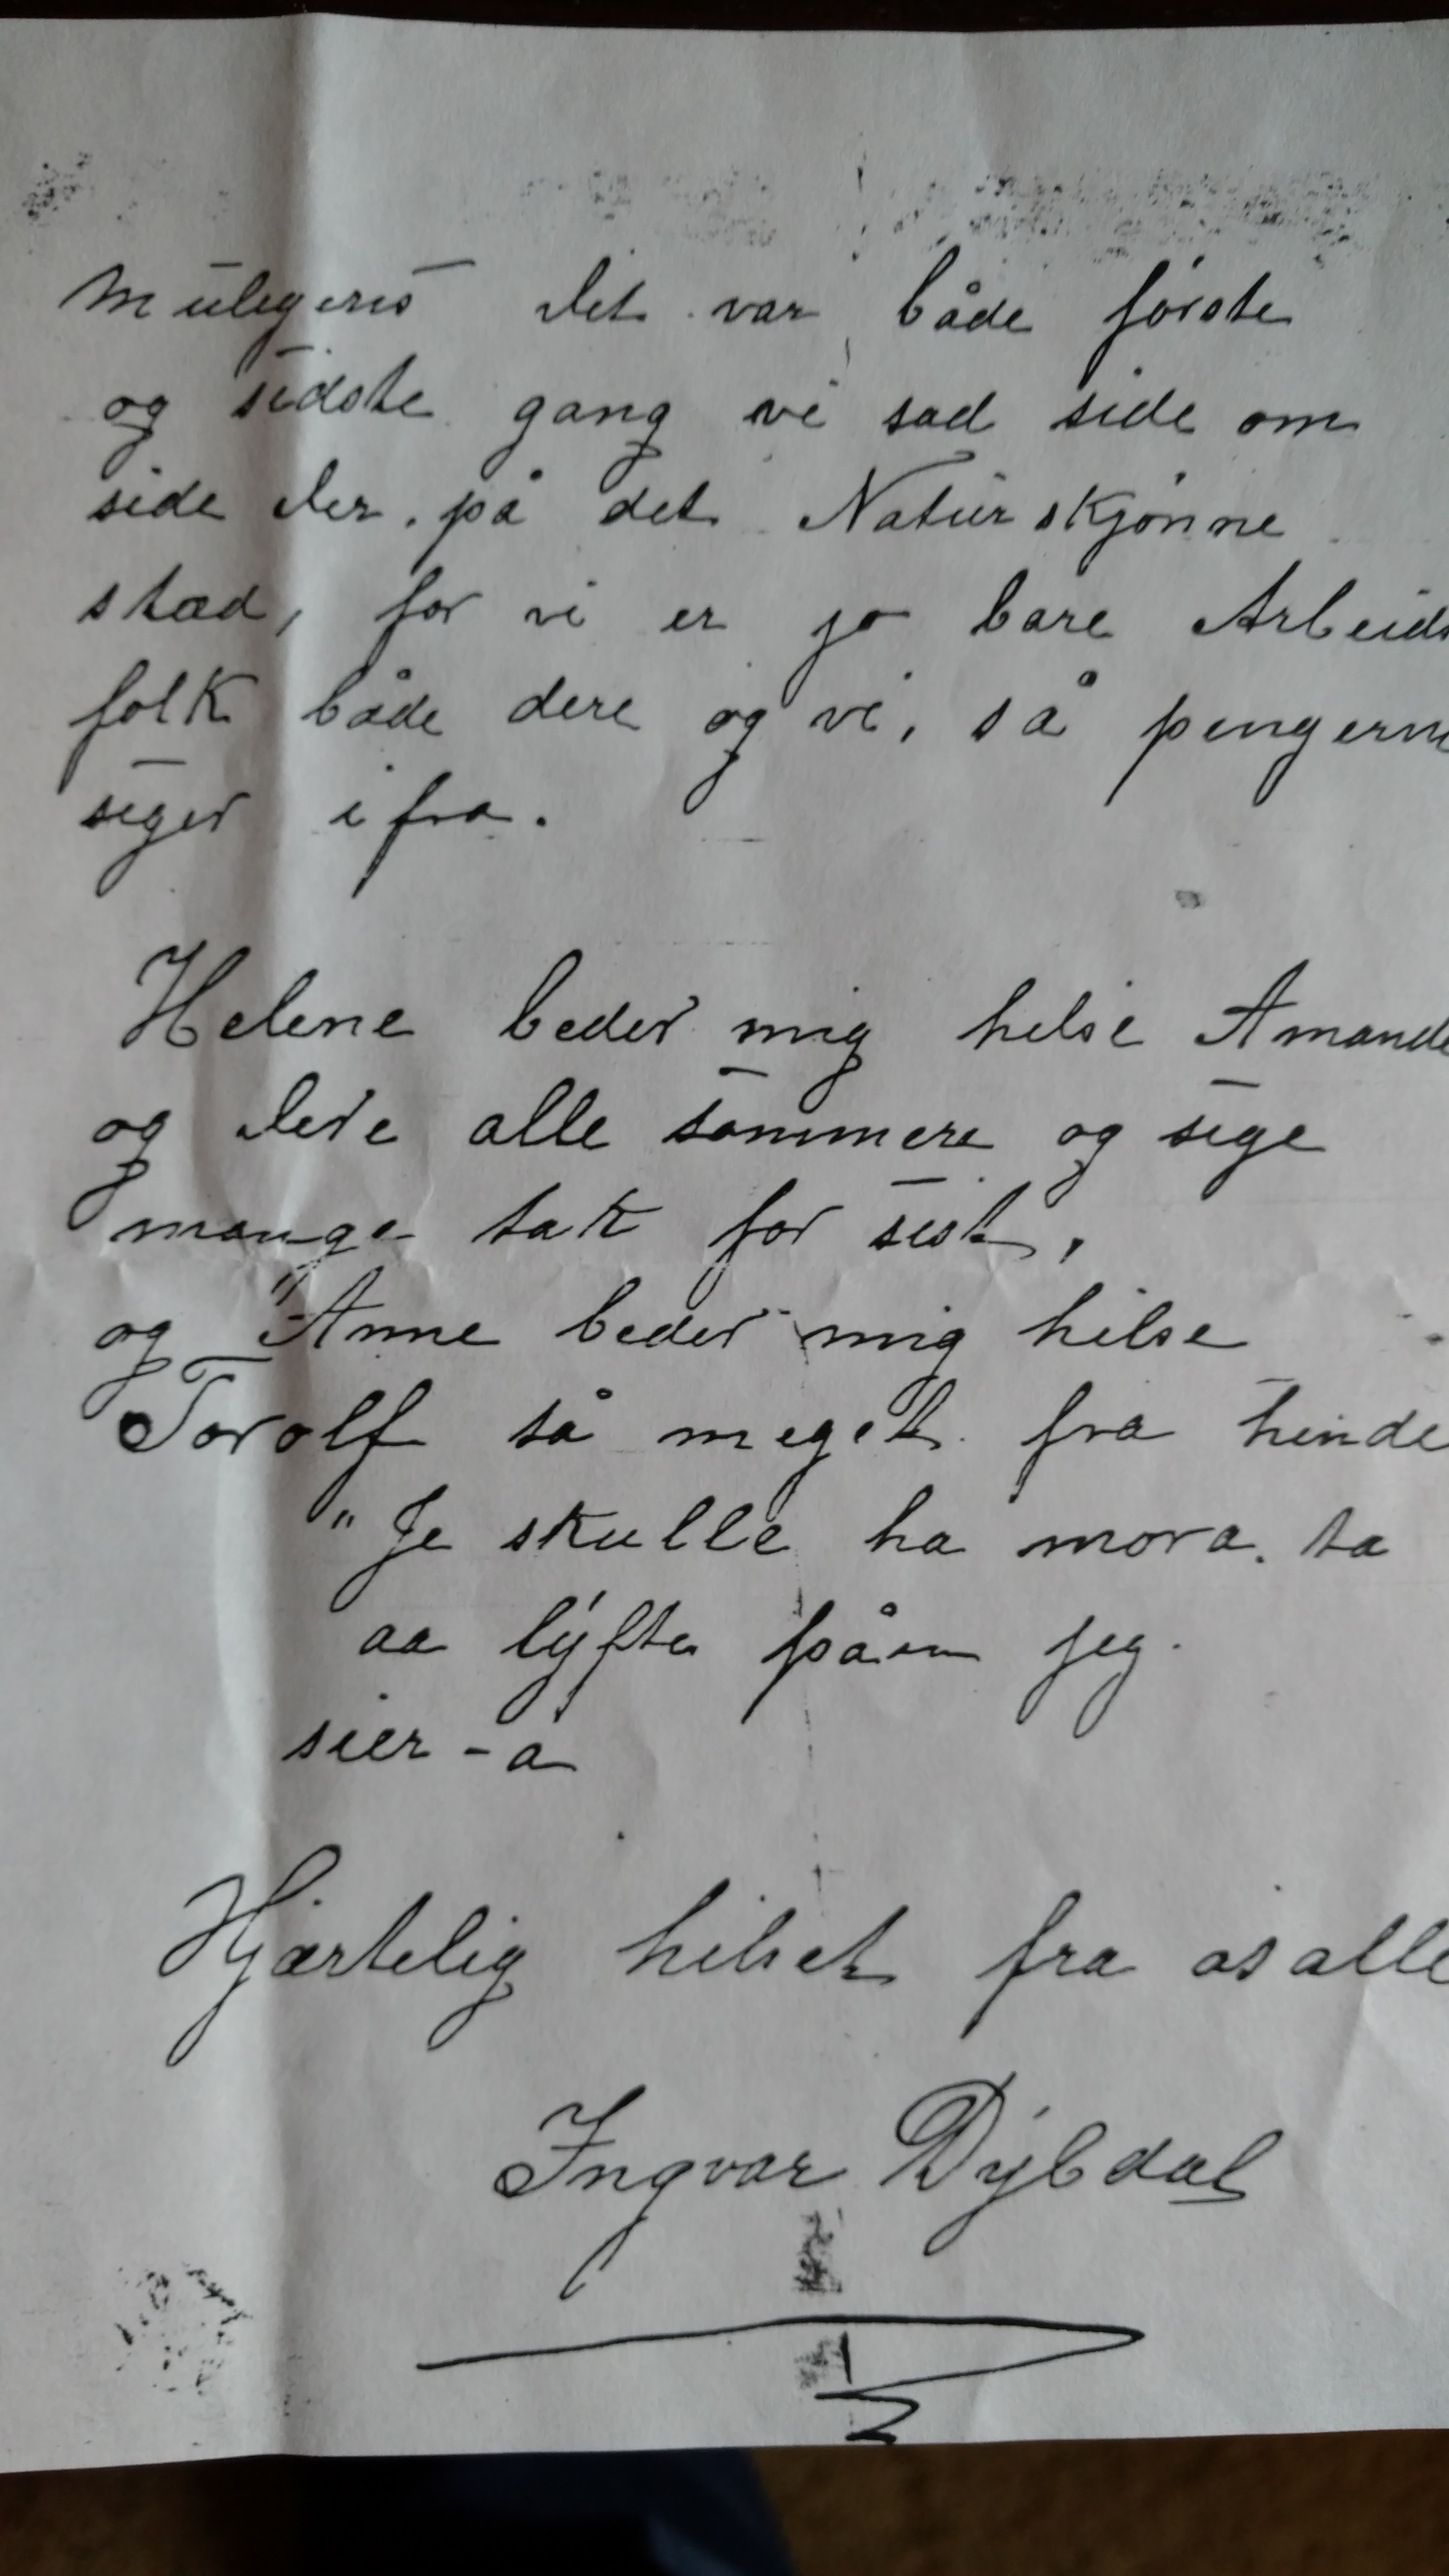 Muligens Det var både første
og sidste gang vi sad side om
side der. på det Naturskjønne
stæd, for vi er jo bare Arbeids
folk både dere og vi, så pengerne
siger ifra.
Helene beder mig helse Amanda
og Dere alle sammere og sige
mange takk for sist,
og "Anne beder mig hilse
Torolf så meget fra hende
"Je skulle ha mora. ta
aa lyfte påen jeg.
sier-a
Hjærtelig hilset fra os alle
Ingvar Dybdal